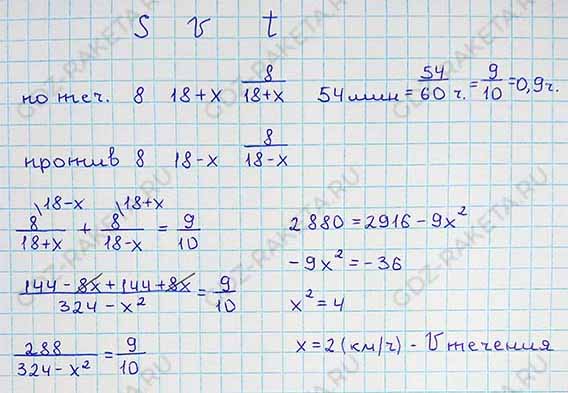 S V t
по теч. 8 18+x 8/(18+x) 54 мин = 54/60 ч. = 9/10 = 0,9 ч.
против 8 18-x 8/(18-x)
8\18-x/(18+x) + 8\18+x/(18-x) = 9/10
(144-8x+144+8x)/(324-x²) = 9/10
288/(324-x²) = 9/10
2880=2916-9x²
-9x²=-36
x²=4
x=2(км/ч) - V течения
GDZ-RAKETA.RU
GDZ-RAKETA.RU
GDZ-RAKETA.RU
GDZ-RAKETA.RU
GDZ-RAKETA.RU
GDZ-RAKETA.RU